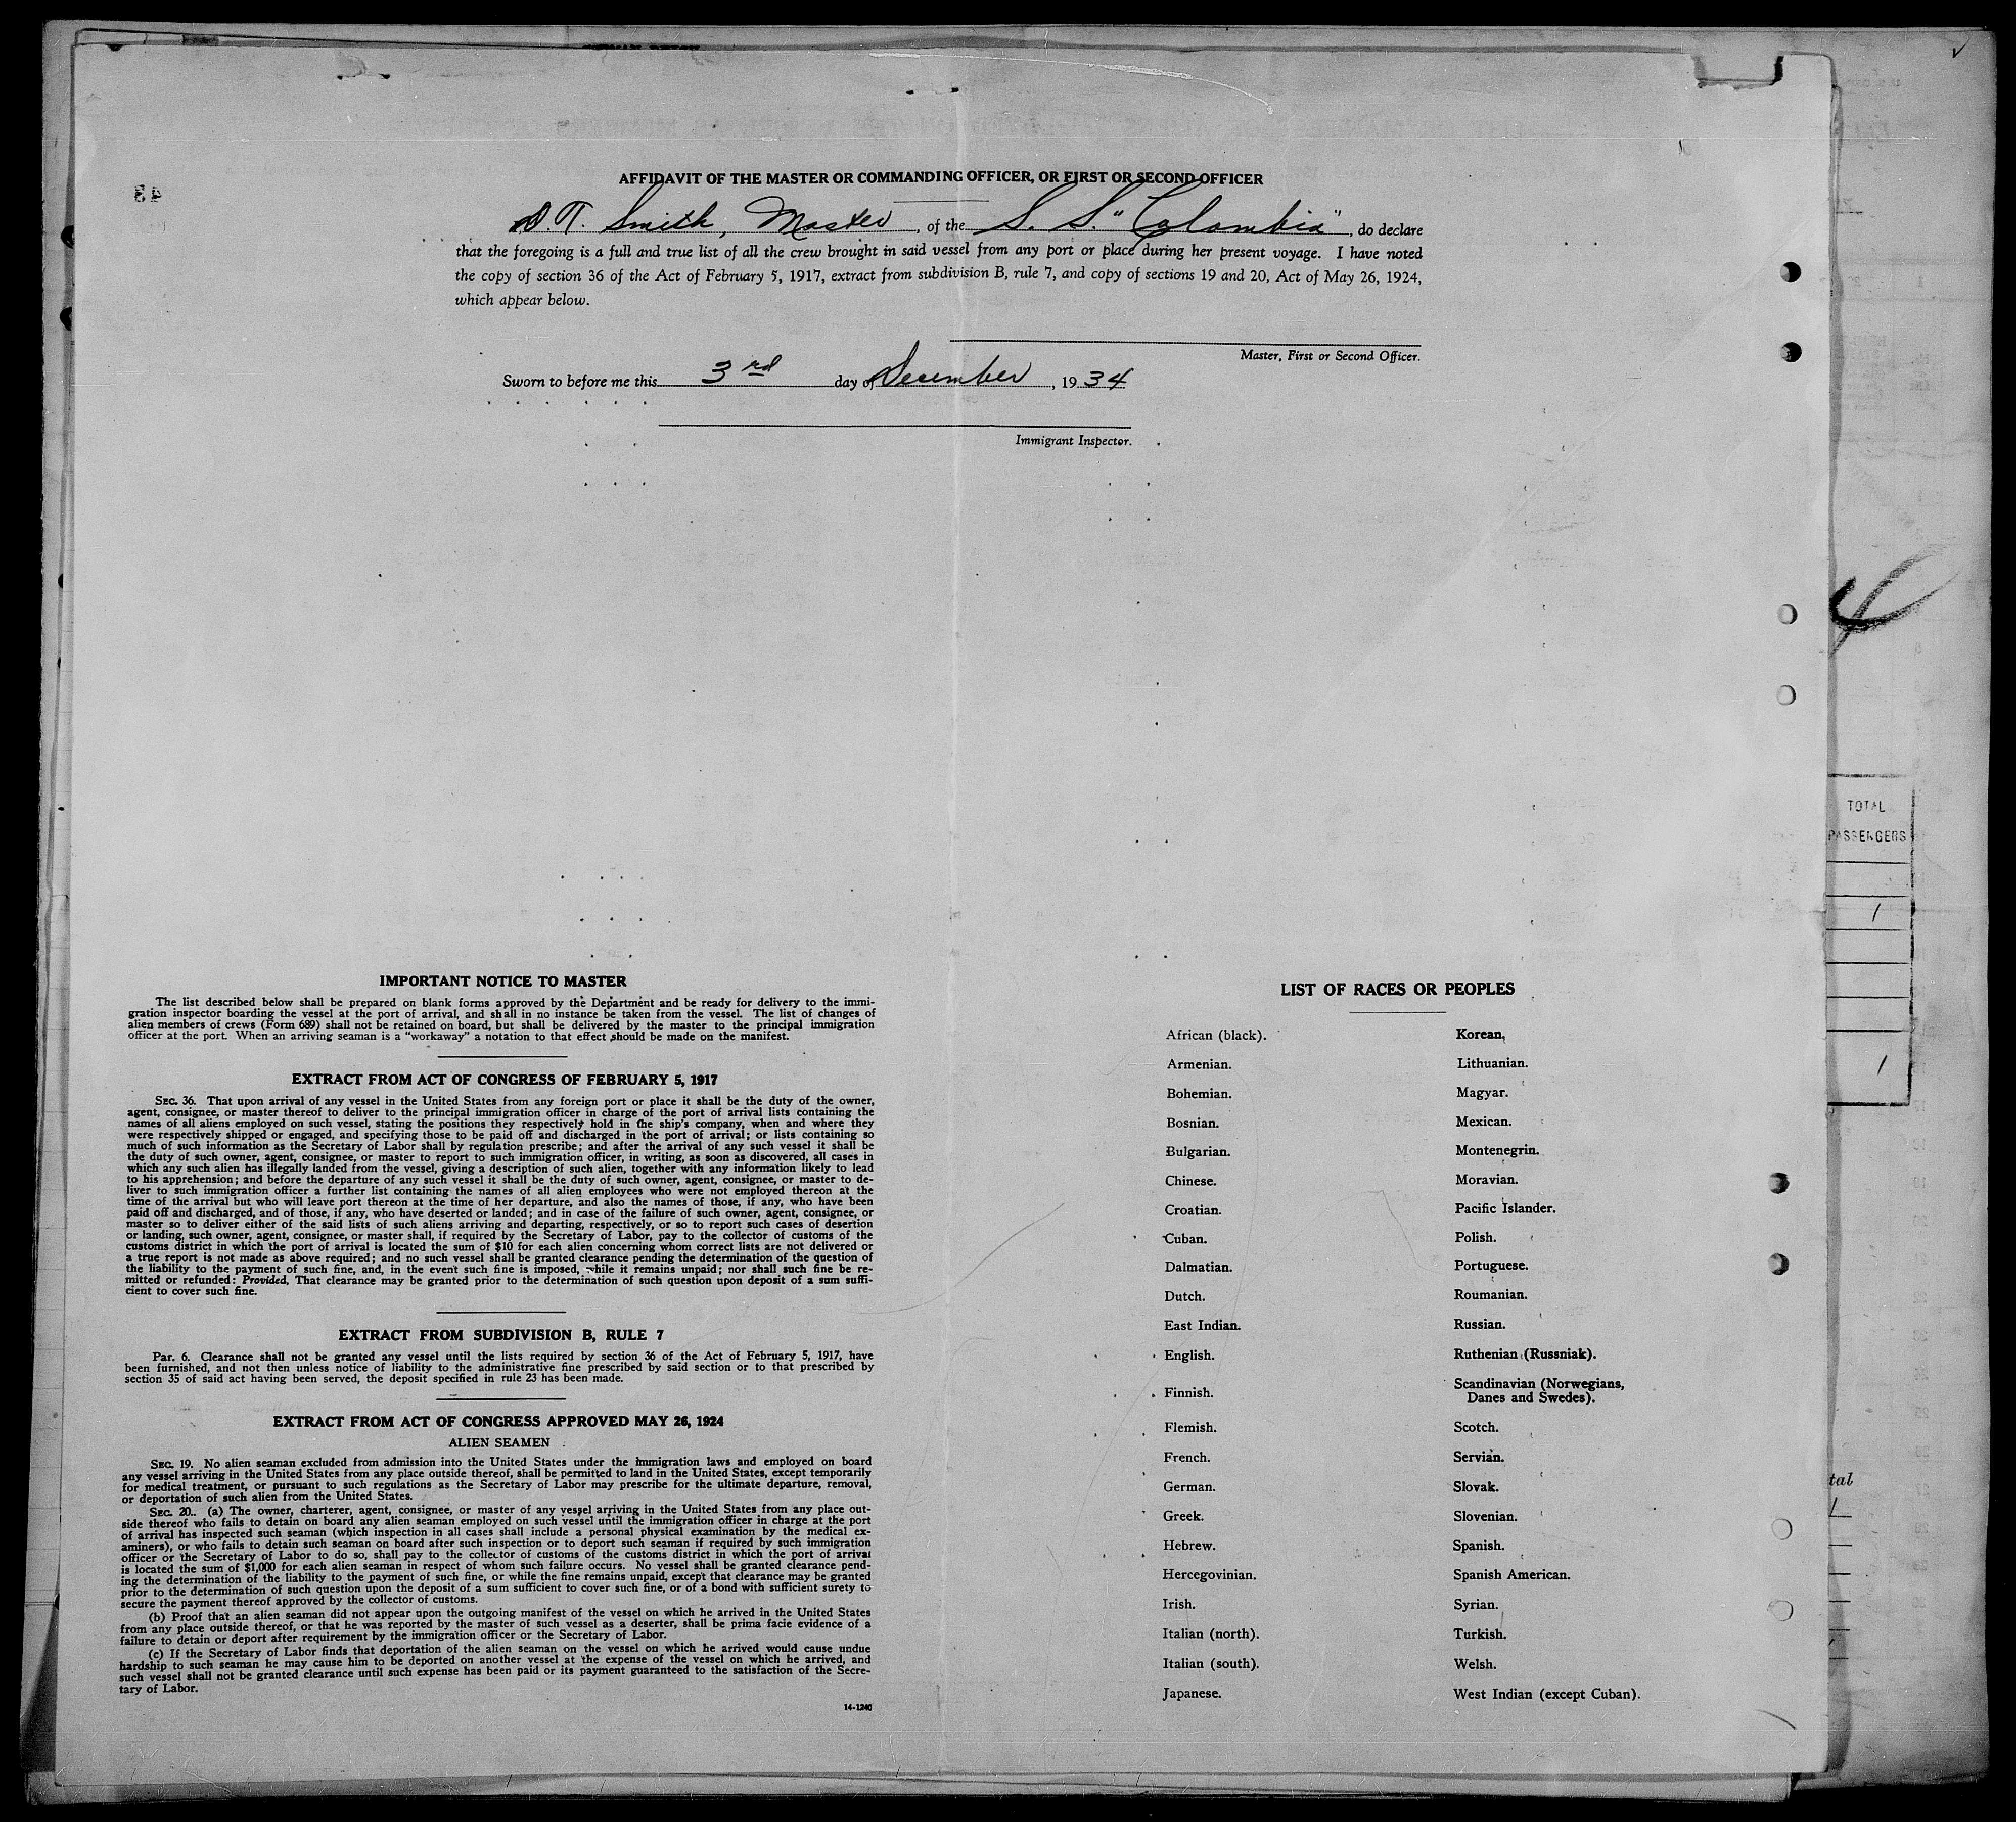 AFFIDAVIT OF THE MASTER OR COMMANDING OFFICER, OR FIRST OR SECOND OFFICER
D. T. Smith, Master, of the S. S. "Colombia", do declare
that the foregoing is a full and true list of all the crew brought in said vessel from any port or place during her present voyage. I have noted
the copy of section 36 of the Act of February 5, 1917, extract from subdivision B, rule 7, and copy of sections 19 and 20, Act of May 26, 1924,
which appear below.
Master, First or Second Officer.
Sworn to before me this 3rd day of December, 1934
Immigrant Inspector.
TOTAL
PASSENGERS
1
1
tal
IMPORTANT NOTICE TO MASTER
The list described below shall be prepared on blank forms approved by the Department and be ready for delivery to the immi-
gration inspector boarding the vessel at the port of arrival, and shall in no instance be taken from the vessel. The list of changes of
alien members of crews (Form 689) shall not be retained on board, but shall be delivered by the master to the principal immigration
officer at the port. When an arriving seaman is a "workaway" a notation to that effect should be made on the manifest.
EXTRACT FROM ACT OF CONGRESS OF FEBRUARY 5, 1917
SEC. 36. That upon arrival of any vessel in the United States from any foreign port or place it shall be the duty of the owner,
agent, consignee, or master thereof to deliver to the principal immigration officer in charge of the port of arrival lists containing the
names of all aliens employed on such vessel, stating the positions they respectively hold in the ship's company, when and where they
were respectively shipped or engaged, and specifying those to be paid off and discharged in the port of arrival; or lists containing so
much of such information as the Secretary of Labor shall by regulation prescribe; and after the arrival of any such vessel it shall be
the duty of such owner, agent, consignee, or master to report to such immigration officer, in writing, as soon as discovered, all cases in
which any such alien has illegally landed from the vessel, giving a description of such alien, together with any information likely to lead
to his apprehension; and before the departure of any such vessel it shall be the duty of such owner, agent, consignee, or master to de-
liver to such immigration officer a further list containing the names of all alien employees who were not employed thereon at the
time of the arrival but who will leave port thereon at the time of her departure, and also the names of those, if any, who have been
paid off and discharged, and of those, if any, who have deserted or landed; and in case of the failure of such owner, agent, consignee, or
master so to deliver either of the said lists of such aliens arriving and departing, respectively, or so to report such cases of desertion
or landing, such owner, agent, consignee, or master shall, if required by the Secretary of Labor, pay to the collector of customs of the
customs district in which the port of arrival is located the sum of $10 for each alien concerning whom correct lists are not delivered or
a true report is not made as above required; and no such vessel shall be granted clearance pending the determination of the question of
the liability to the payment of such fine, and, in the event such fine is imposed, while it remains unpaid; nor shall such fine be re-
mitted or refunded: Provided, That clearance may be granted prior to the determination of such question upon deposit of a sum suffi-
cient to cover such fine.
EXTRACT FROM SUBDIVISION B, RULE 7
Par. 6. Clearance shall not be granted any vessel until the lists required by section 36 of the Act of February 5, 1917, have
been furnished, and not then unless notice of liability to the administrative fine prescribed by said section or to that prescribed by
section 35 of said act having been served, the deposit specified in rule 23 has been made.
EXTRACT FROM ACT OF CONGRESS APPROVED MAY 26, 1924
ALIEN SEAMEN
SEC. 19. No alien seaman excluded from admission into the United States under the immigration laws and employed on board
any vessel arriving in the United States from any place outside thereof, shall be permitted to land in the United States, except temporarily
for medical treatment, or pursuant to such regulations as the Secretary of Labor may prescribe for the ultimate departure, removal,
or deportation of such alien from the United States.
SEC. 20. (a) The owner, charterer, agent, consignee, or master of any vessel arriving in the United States from any place out-
side thereof who fails to detain on board any alien seaman employed on such vessel until the immigration officer in charge at the port
of arrival has inspected such seaman (which inspection in all cases shall include a personal physical examination by the medical ex-
aminers), or who fails to detain such seaman on board after such inspection or to deport such seaman if required by such immigration
officer or the Secretary of Labor to do so, shall pay to the collector of customs of the customs district in which the port of arrival
is located the sum of $1,000 for each alien seaman in respect of whom such failure occurs. No vessel shall be granted clearance pend-
ing the determination of the liability to the payment of such fine, or while the fine remains unpaid, except that clearance may be granted
prior to the determination of such question upon the deposit of a sum sufficient to cover such fine, or of a bond with sufficient surety to
secure the payment thereof approved by the collector of customs.
(b) Proof that an alien seaman did not appear upon the outgoing manifest of the vessel on which he arrived in the United States
from any place outside thereof, or that he was reported by the master of such vessel as a deserter, shall be prima facie evidence of a
failure to detain or deport after requirement by the immigration officer or the Secretary of Labor.
(c) If the Secretary of Labor finds that deportation of the alien seaman on the vessel on which he arrived would cause undue
hardship to such seaman he may cause him to be deported on another vessel at the expense of the vessel on which he arrived, and
such vessel shall not be granted clearance until such expense has been paid or its payment guaranteed to the satisfaction of the Secre-
tary of Labor.
14-1240
LIST OF RACES OR PEOPLES
African (black).
Armenian.
Bohemian.
Bosnian.
Bulgarian.
Chinese.
Croatian.
Cuban.
Dalmatian.
Dutch.
East Indian.
English.
Finnish.
Flemish.
French.
German.
Greek.
Hebrew.
Hercegovinian.
Irish.
Italian (north).
Italian (south).
Japanese.
Korean.
Lithuanian.
Magyar.
Mexican.
Montenegrin.
Moravian.
Pacific Islander.
Polish.
Portuguese.
Roumanian.
Russian.
Ruthenian (Russniak).
Scandinavian (Norwegians,
Danes and Swedes).
Scotch.
Servian.
Slovak.
Slovenian.
Spanish.
Spanish American.
Syrian.
Turkish.
Welsh.
West Indian (except Cuban).